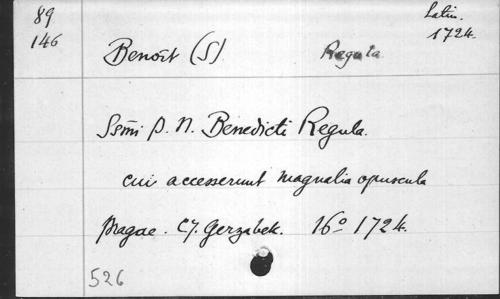 89
146
Latin.
1724.
Benoît (S) Regula
Ssmi P. N. Benedicti Regula.
cui accesserunt magnalia opuscula
Pragae. C. J. Gerzabek. 16º 1724.
526